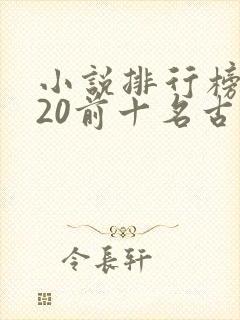 小説排行榜
20前十名古
令長軒